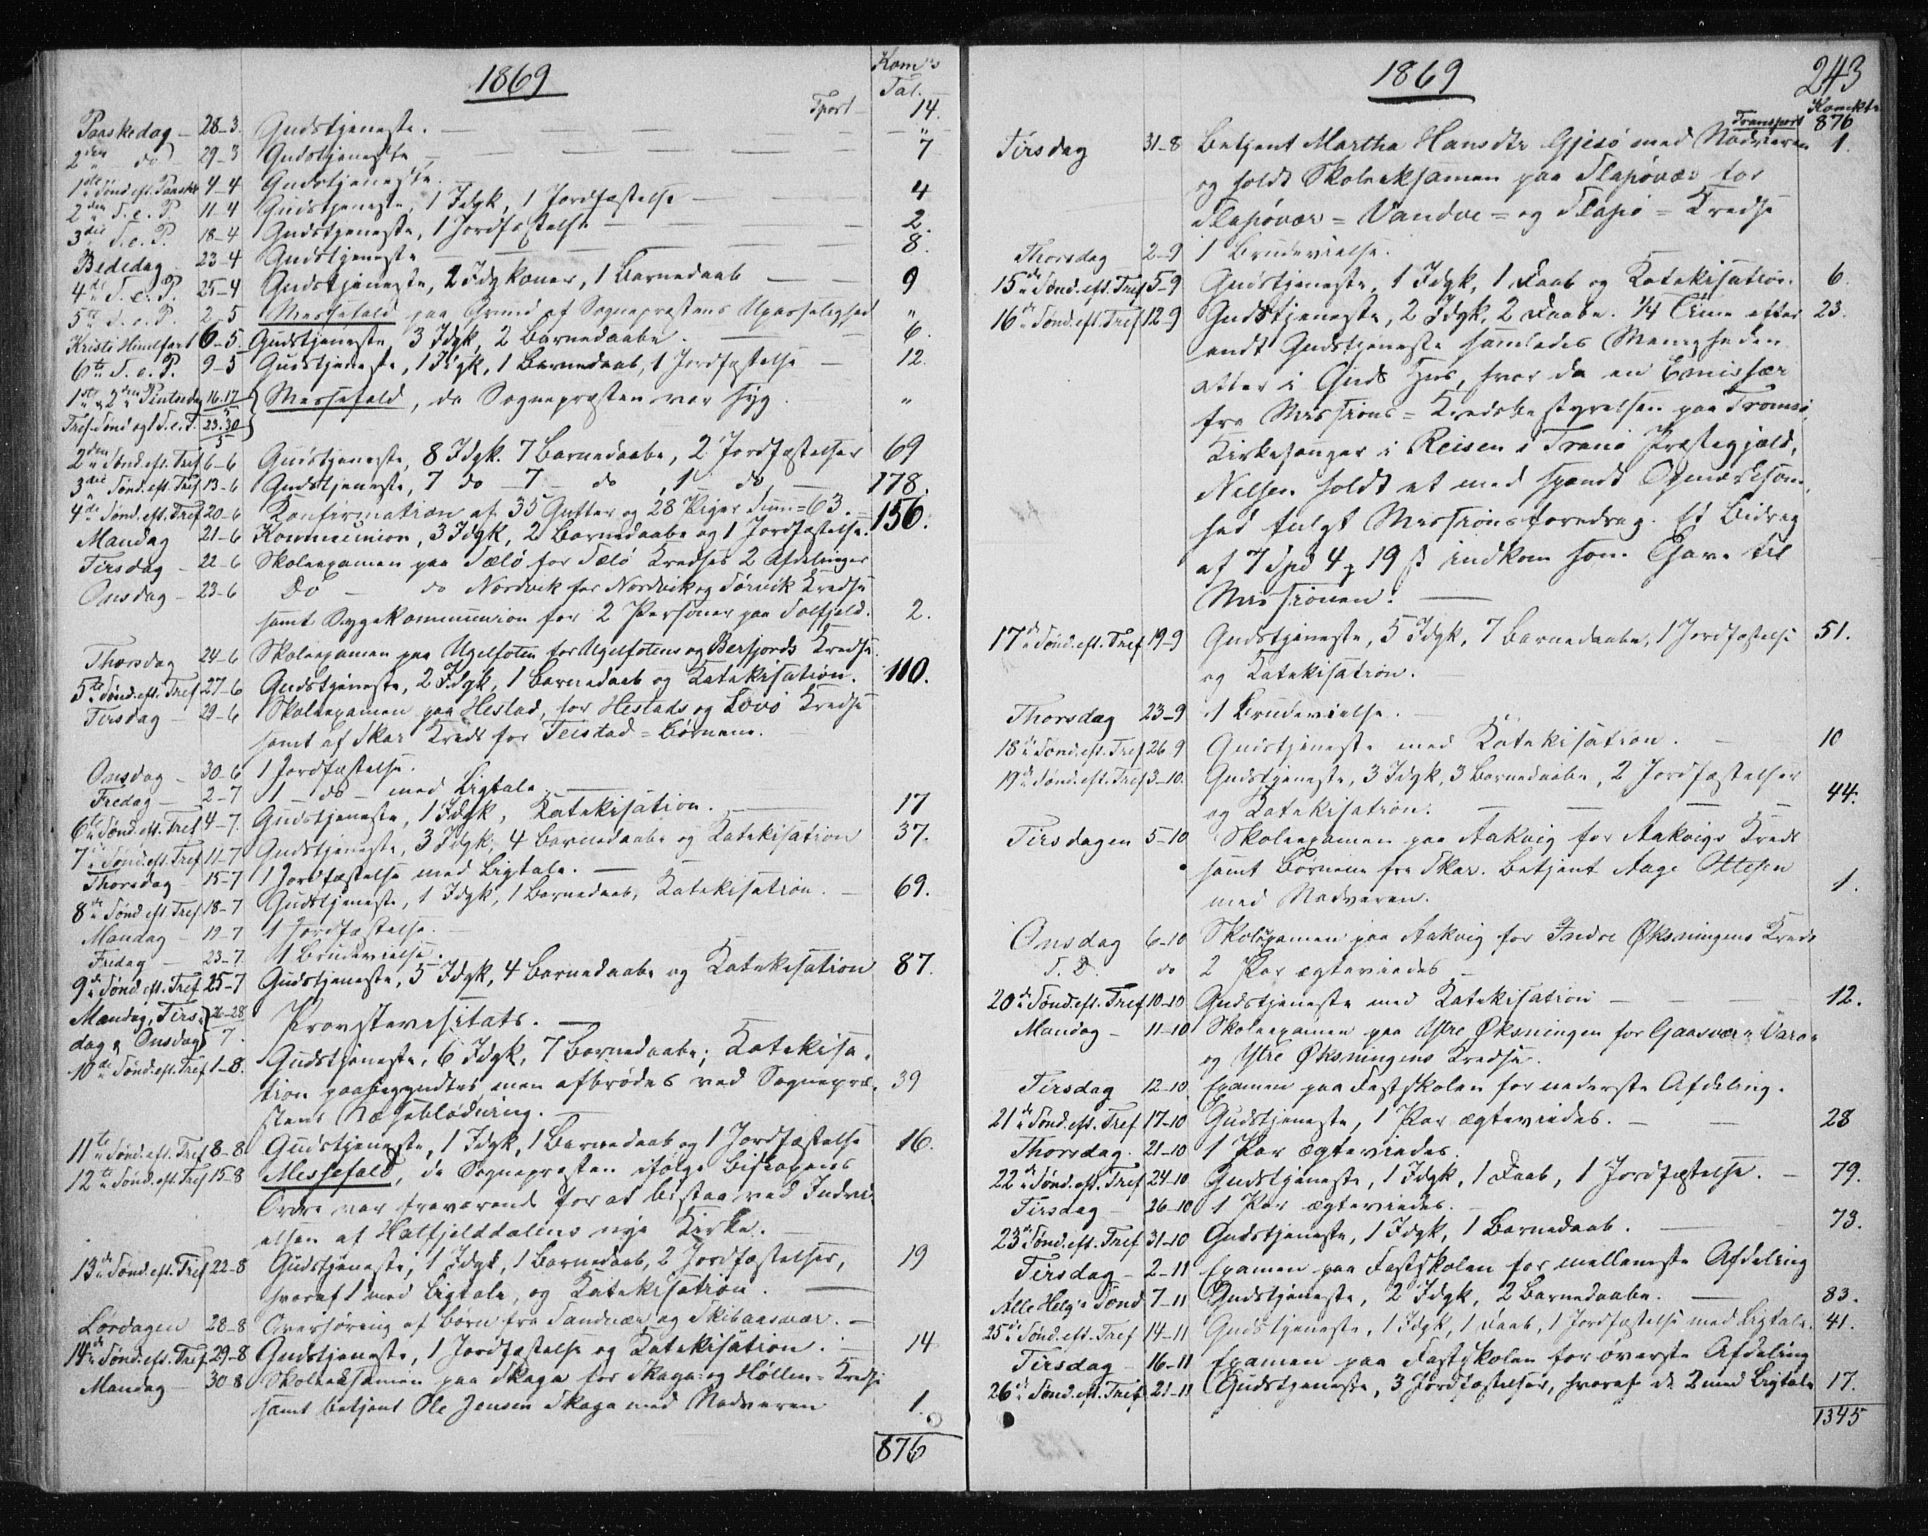 1869
Kom's
Tal.
Tport 14.
Paaskedag - 28-3. Gudstjeneste. "
2den do 29-3 Gudstjeneste 7
1ste Sønd. eft. Paaske 4-4 Gudstjeneste.
2den S. e. P. 11-4 Gudstjeneste, 1 Idgk, 1 Jordfæstelse 4
3die S. e. P. 18-4 Gudstjeneste, 1 Jordfæstelse 2.
Bededag 23-4 Gudstjeneste 8.
4de S. e. P. 25-4 Gudstjeneste, 2 Idgkoner, 1 Barnedaab 9
5te S. e. P. 2-5 Messefald paa Grund af Sognepræstens Upasselighed "
Kristi Himlfart 6-5. Gudstjeneste, 3 Idgk, 2 Barnedaabe. 6.
6te S. e. P. 9-5 Gudstjeneste, 1 Idgk, 1 Barnedaab, 1 Jordfæstelse 12.
1ste & 2den Pintsedag 16.17 Messefald, da Sognepræsten var syg. "
Tref. Sønd og 1 S. e. T. 23.30 5
2den Sønd. eft. Tref 6-6 Gudstjeneste, 8 Idgk. 7 Barnedaabe, 2 Jordfæstelser 69
3die Sønd. eft. Tref 13-6 Gudstjeneste, 7 do 7 do, 1 do 178.
4de Sønd. eft. Tref 20-6 Konfirmation af 35 Gutter og 28 Piger Sum = 63.
Mandag 21-6 Kommunion, 3 Idgk, 2 Barnedaabe og 1 Jordfæstelse. 156.
Tirsdag - 22-6 Skoleexamen paa Sælø for Sælø Kredses 2 Afdelinger
Onsdag - 23-6 Do - do Nordvik for Nordvik og Sørvik Kredse
samt Sygekommunion for 2 Personer paa Solfjeld. 2.
Thorsdag 24-6 Skoleexamen paa Ugelfoten for Ugelfotens og Berfjords Kredse
5te Sønd. eft. Tref 27-6 Gudstjeneste, 2 Idgk, 1 Barnedaab og Katekisation. 110.
Tirsdag - 29-6 Skoleexamen paa Hestad, for Hestads og Lovø Kredse
samt af Skar Kreds for Teistad = Børnene.
Onsdag - 30-6 1 Jordfæstelse.
Fredag - 2-7 1 - do - med Ligtale.
6te Sønd. eft. Tref 4-7. Gudstjeneste, 1 Idgk, Katekisation. 17
7de Sønd. eft. Tref 11-7 Gudstjeneste, 3 Idgk, 4 Barnedaabe og Katekisation 37.
Thorsdag - 15-7 1 Jordfæstelse med Ligtale.
8de Sønd. eft. Tref 18-7 Gudstjeneste, 1 Idgk, 1 Barnedaab, Katekisation. 69.
Mandag - 19-7 1 Jordfæstelse.
Fredag - 23-7 1 Brudevielse.
9de Sønd. eft. Tref 25-7 Gudstjeneste, 5 Idgk, 4 Barnedaabe og Katekisation 87.
Mandag, Tirs- 26-28
dag & Onsdag 7. Provstevisitats.
10de Sønd. eft. Tref 1-8. Gudstjeneste, 6 Idgk, 7 Barnedaabe; Katekisa-
tion paabegyndtes, men afbrødes ved Sognepræ- 39
stens Næseblødning.
11te Sønd. eft. Tref 8-8 Gudstjeneste, 1 Idgk, 1 Barnedaab og 1 Jordfæstelse 16.
12te Sønd. eft. Tref 15-8 Messefald, da Sognepræsten ifølge Biskopens
Ordre var fraværende for at bistaa ved Indvi-
elsen af Hatfjelddalens nye Kirke.
13de Sønd. eft. Tref 22-8 Gudstjeneste, 1 Idgk, 1 Barnedaab, 2 Jordfæstelser, 19
hvoraf 1 med Ligtale, og Katekisation.
Lørdagen 28-8 Overhøring af Børn fra Sandvær og Skibaasvær.
14de Sønd. eft. Tref. 29-8 Gudstjeneste, 1 Jordfæstelse og Katekisation. 14
Mandag - 30-8 Skoleeksamen paa Skaga for Skaga og Høllen = Kredse
samt betjent Ole Jensen Skaga med Nadveren 1.
876
1869
243
Komkte
Transport 876
Tirsdag 31-8 Betjent Martha Hansdtr Gjesø med Nadveren 1.
og holdt Skoleeksamen paa Flapøvær for
Flapøvær = Vandve = og Flapø = Kredse
Thorsdag 2-9 1 Brudevielse.
15de Sønd. eft. Tref 5-9 Gudstjeneste, 1 Idgk, 1 Daab og Katekisation. 6.
16de Sønd. eft. Tref 12-9 Gudstjeneste, 2 Idgk, 2 Daabe. 1/4 Time efter 23.
endt Gudstjeneste samledes Menigheden
atter i Guds Hus, hvor da en Emissær
fra Missions = Kredsbestyrelsen paa Tromsø
Kirkesanger i Reisen i Tranø Præstegjæld,
Nilsen holdt et med spændt Opmærksom-
hed fulgt Missionsforedrag. Et Bidrag
af 7 Spd 4 19 ß indkom som Gave til
Missionen.
17de Sønd. eft. Tref 19-9 Gudstjeneste, 5 Idgk, 7 Barnedaabe, 1 Jordfæstelse 51.
og Katekisation.
Thorsdag 23-9 1 Brudevielse.
18de Sønd. eft. Tref 26 9 Gudstjeneste med Katekisation. 10
19de Sønd. eft. Tref 3-10. Gudstjeneste, 3 Idgk, 3 Barnedaabe, 2 Jordfæstelser
og Katekisation. 44.
Tirsdagen 5-10 Skoleexamen paa Aakvig for Aakvigs Kreds
samt Børnene fra Skar. Betjent Aage Ottesen
med Nadveren. 1.
Onsdag 6-10 Skoleexamen paa Aakvig for Indre Øksningens Kreds
S. D. do 2 Par ægteviedes
20de Sønd. eft. Tref 10-10 Gudstjeneste med Katekisation 12.
Mandag - 11-10 Skoleexamen paa Ytre Øksningen for Gaasvær = Varø =
og Ytre Øksningens Kredse.
Tirsdag 12-10 Examen paa Fastskolen for nederste Afdeling.
21de Sønd. eft. Tref 17-10 Gudstjeneste, 1 Par ægteviedes. 28
Thorsdag. 21-10 1 Par ægteviedes.
22de Sønd. eft. Tref 24-10 Gudstjeneste, 1 Idgk, 1 Daab, 1 Jordfæstelse. 79.
Tirsdag - 26-10 1 Par ægteviedes.
23de Sønd. eft. Tref 31-10 Gudstjeneste, 1 Idgk, 1 Barnedaab. 73.
Tirsdag - 2-11 Examen paa Fastskolen for mellemste Afdeling
Alle Helg's Sønd 7-11 Gudstjeneste, 2 Idgk, 2 Barnedaabe. 83.
25de Sønd. eft. Tref 14-11 Gudstjeneste, 1 Idgk, 1 Daab, 1 Jordfæstelse med Ligtale. 41.
Tirsdag 16-11 Examen paa Fastskolen for øverste Afdeling
26de Sønd. eft. Tref 21-11 Gudstjeneste, 3 Jordfæstelser, hvoraf de 2 med Ligtale 17.
1345